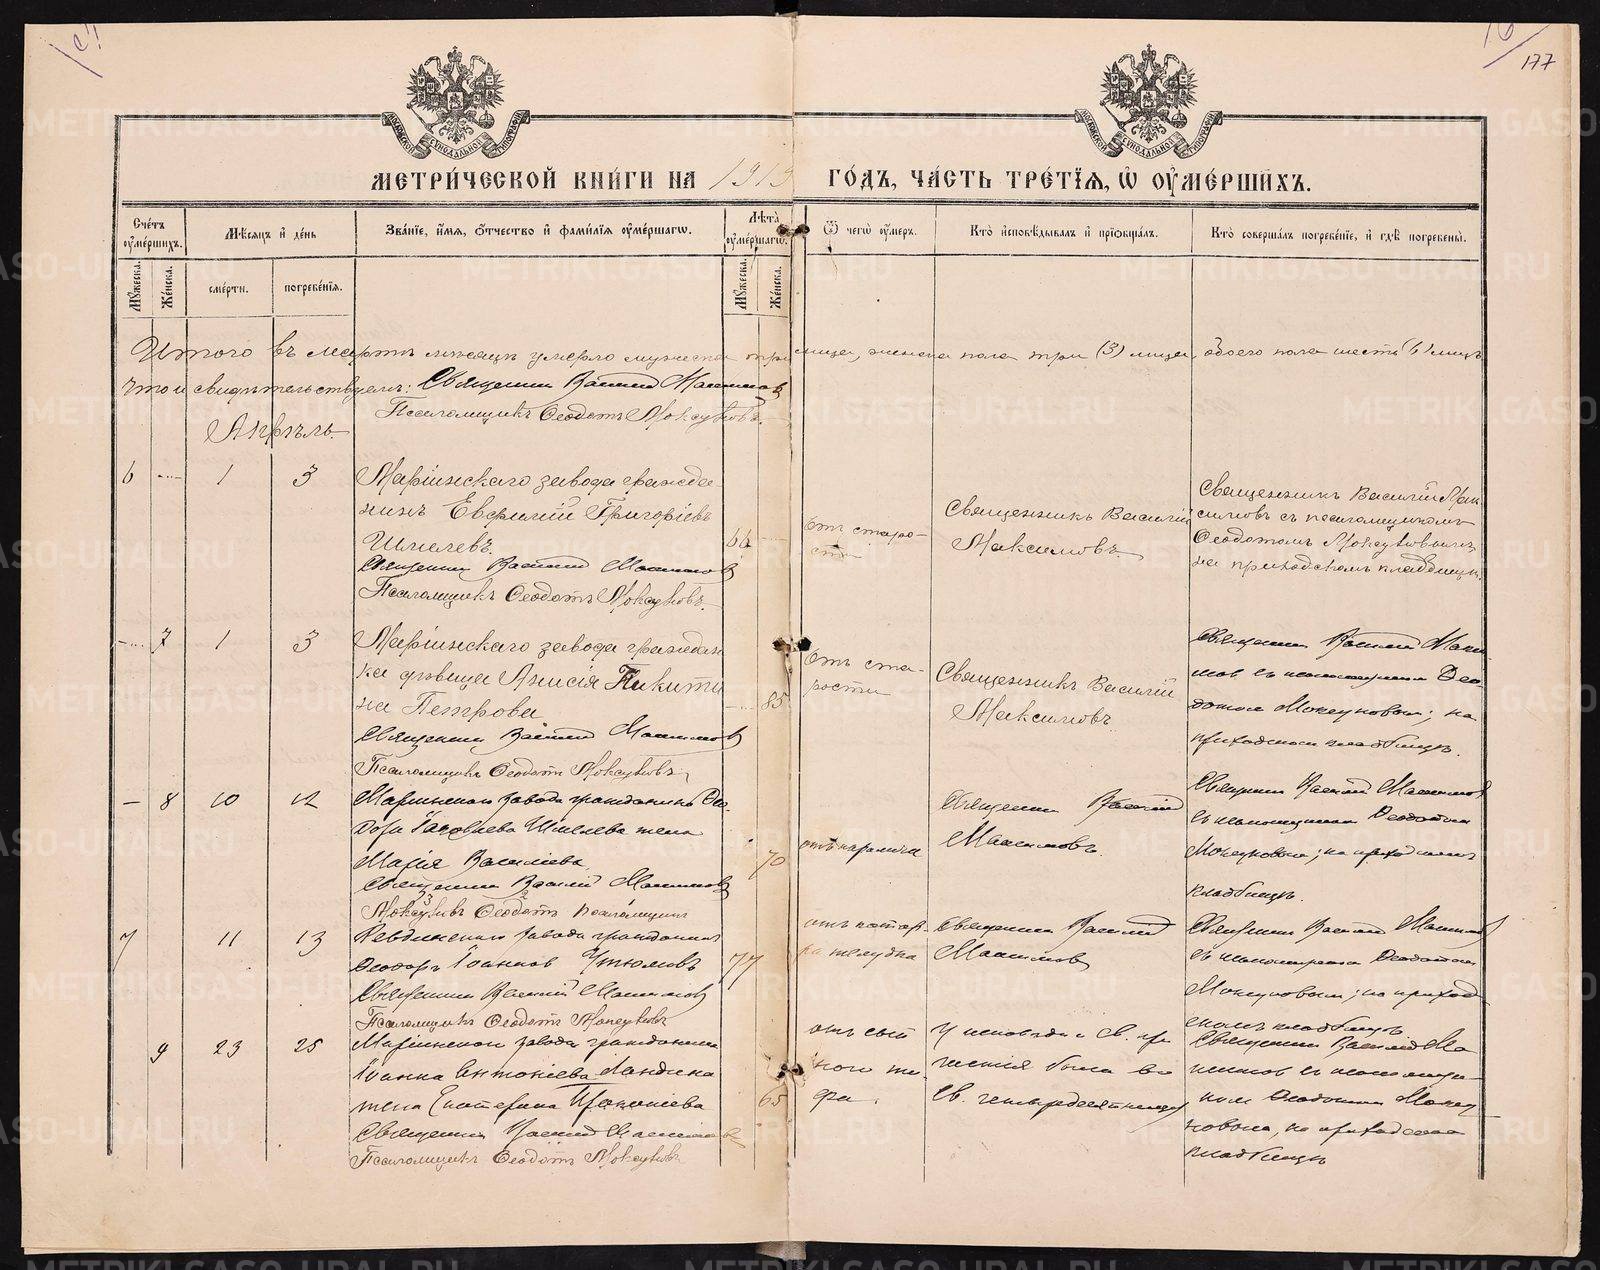 177
МЕТРИ́ЧЕСКОЙ КНИ́ГИ НА 1919 ГО́ДЪ, ЧА́СТЬ ТРЕ́ТІЯ, Ѡ ОУ҆МЕ́РШИХЪ.
Сче́тъ оумершихъ.
Мѣсяцъ и день
Званіе, имя, отчество и фамилія оумершагѡ.
Лѣта оумершагѡ.
Ѿ чегѡ оумеръ.
Кто исповѣдывалъ и пріобщалъ.
Кто совершалъ погребеніе, и гдѣ погребены.
Мужеска. Женска. смерти. погребенія. Мужеска. Женска.
Итого въ мартѣ мѣсяцѣ умерло мужеска три лица, женска пола три (3) лица, обоего пола шесть (6) лицъ
что и свидѣтельствуемъ: Священник Василий Максимов
Псаломщикъ Ѳеодотъ Мокеуновъ.
Апрѣль.
6 1 3
Маріинскаго завода гражда-
нинъ Евфимій Григоріевъ
Шмелевъ.
Священник Василий Максимов
Псаломщикъ Ѳеодотъ Мокеуновъ.
66
Отъ старо-
сти
Священникъ Василій
Максимовъ
Священникъ Василій Мак-
симовъ съ псаломщикомъ
Ѳеодотомъ Мокеуновымъ,
на приходскомъ кладбищѣ.
7 1 3
Маріинскаго завода граждан
ка дѣвица Анисія Никити
на Петрова
Священник Василий Максимов
Псаломщикъ Ѳеодотъ Мокеуновъ
85
Отъ ста-
рости
Священникъ Василій
Максимовъ
Священник Василий Макси
мов съ псаломщиком Ѳео-
дотом Мокеуновым; на
приходском кладбищѣ.
— 8 10 12
Маріинскаго завода гражданина Ѳео-
дора Іаковлева Шмелева жена
Марія Васильева
Священник Василій Максимов
Мокеуновъ Ѳеодотъ псаломщикъ
70
отъ паралича
Священник Василій
Максимовъ.
Священник Василий Максимов
съ псаломщиком Ѳеодотом
Мокеуновым; на приходскомъ
кладбищѣ.
7 11 13
Ревдинскаго завода гражданин
Ѳеодоръ Іоаннов Утюмовъ
Священник Василій Максимов
Псаломщикъ Ѳеодотъ Мокеуновъ
77
отъ катар-
ра желудка
Священник Василий
Максимов
Священник Василий Максимов
съ псаломщиком Ѳеодотом
Мокеуновым; на приход-
скомъ кладбищѣ
9 23 25
Маріинскаго завода гражданина
Іоанна Антоніева Ландина
жена Екатерина Прокопіева
Священник Василий Максимов
Псаломщикъ Ѳеодотъ Мокеуновъ
65
отъ сып
ного ти-
фа.
У исповѣди и Св. при
частія была во
Св. четыредесятницу
Священник Василий Ма
ксимов съ псаломщи-
ком Ѳеодотом Мокеу
новым, на приходском
кладбищѣ